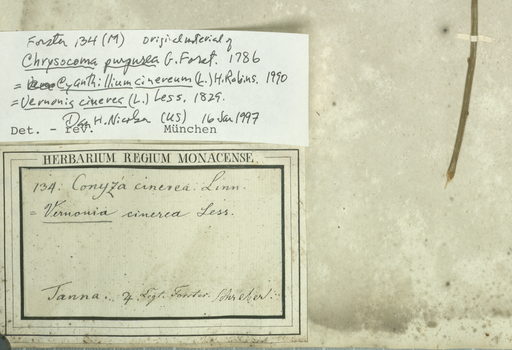 Forster 134 (M) Original material of
Chrysocoma purpurea G. Forst. 1786
= Cyanthillium cinereum (L.) H. Robins. 1990
= Vernonia cinerea (L.) Less. 1829.
Dan H. Nicolson (US) 16 Jan 1997
Det. - rev. München
HERBARIUM REGIUM MONACENSE
134. Conyza cinerea. Linn.
= Vernonia cinerea Less.
Tanna. Legt. Forster. Schreber.